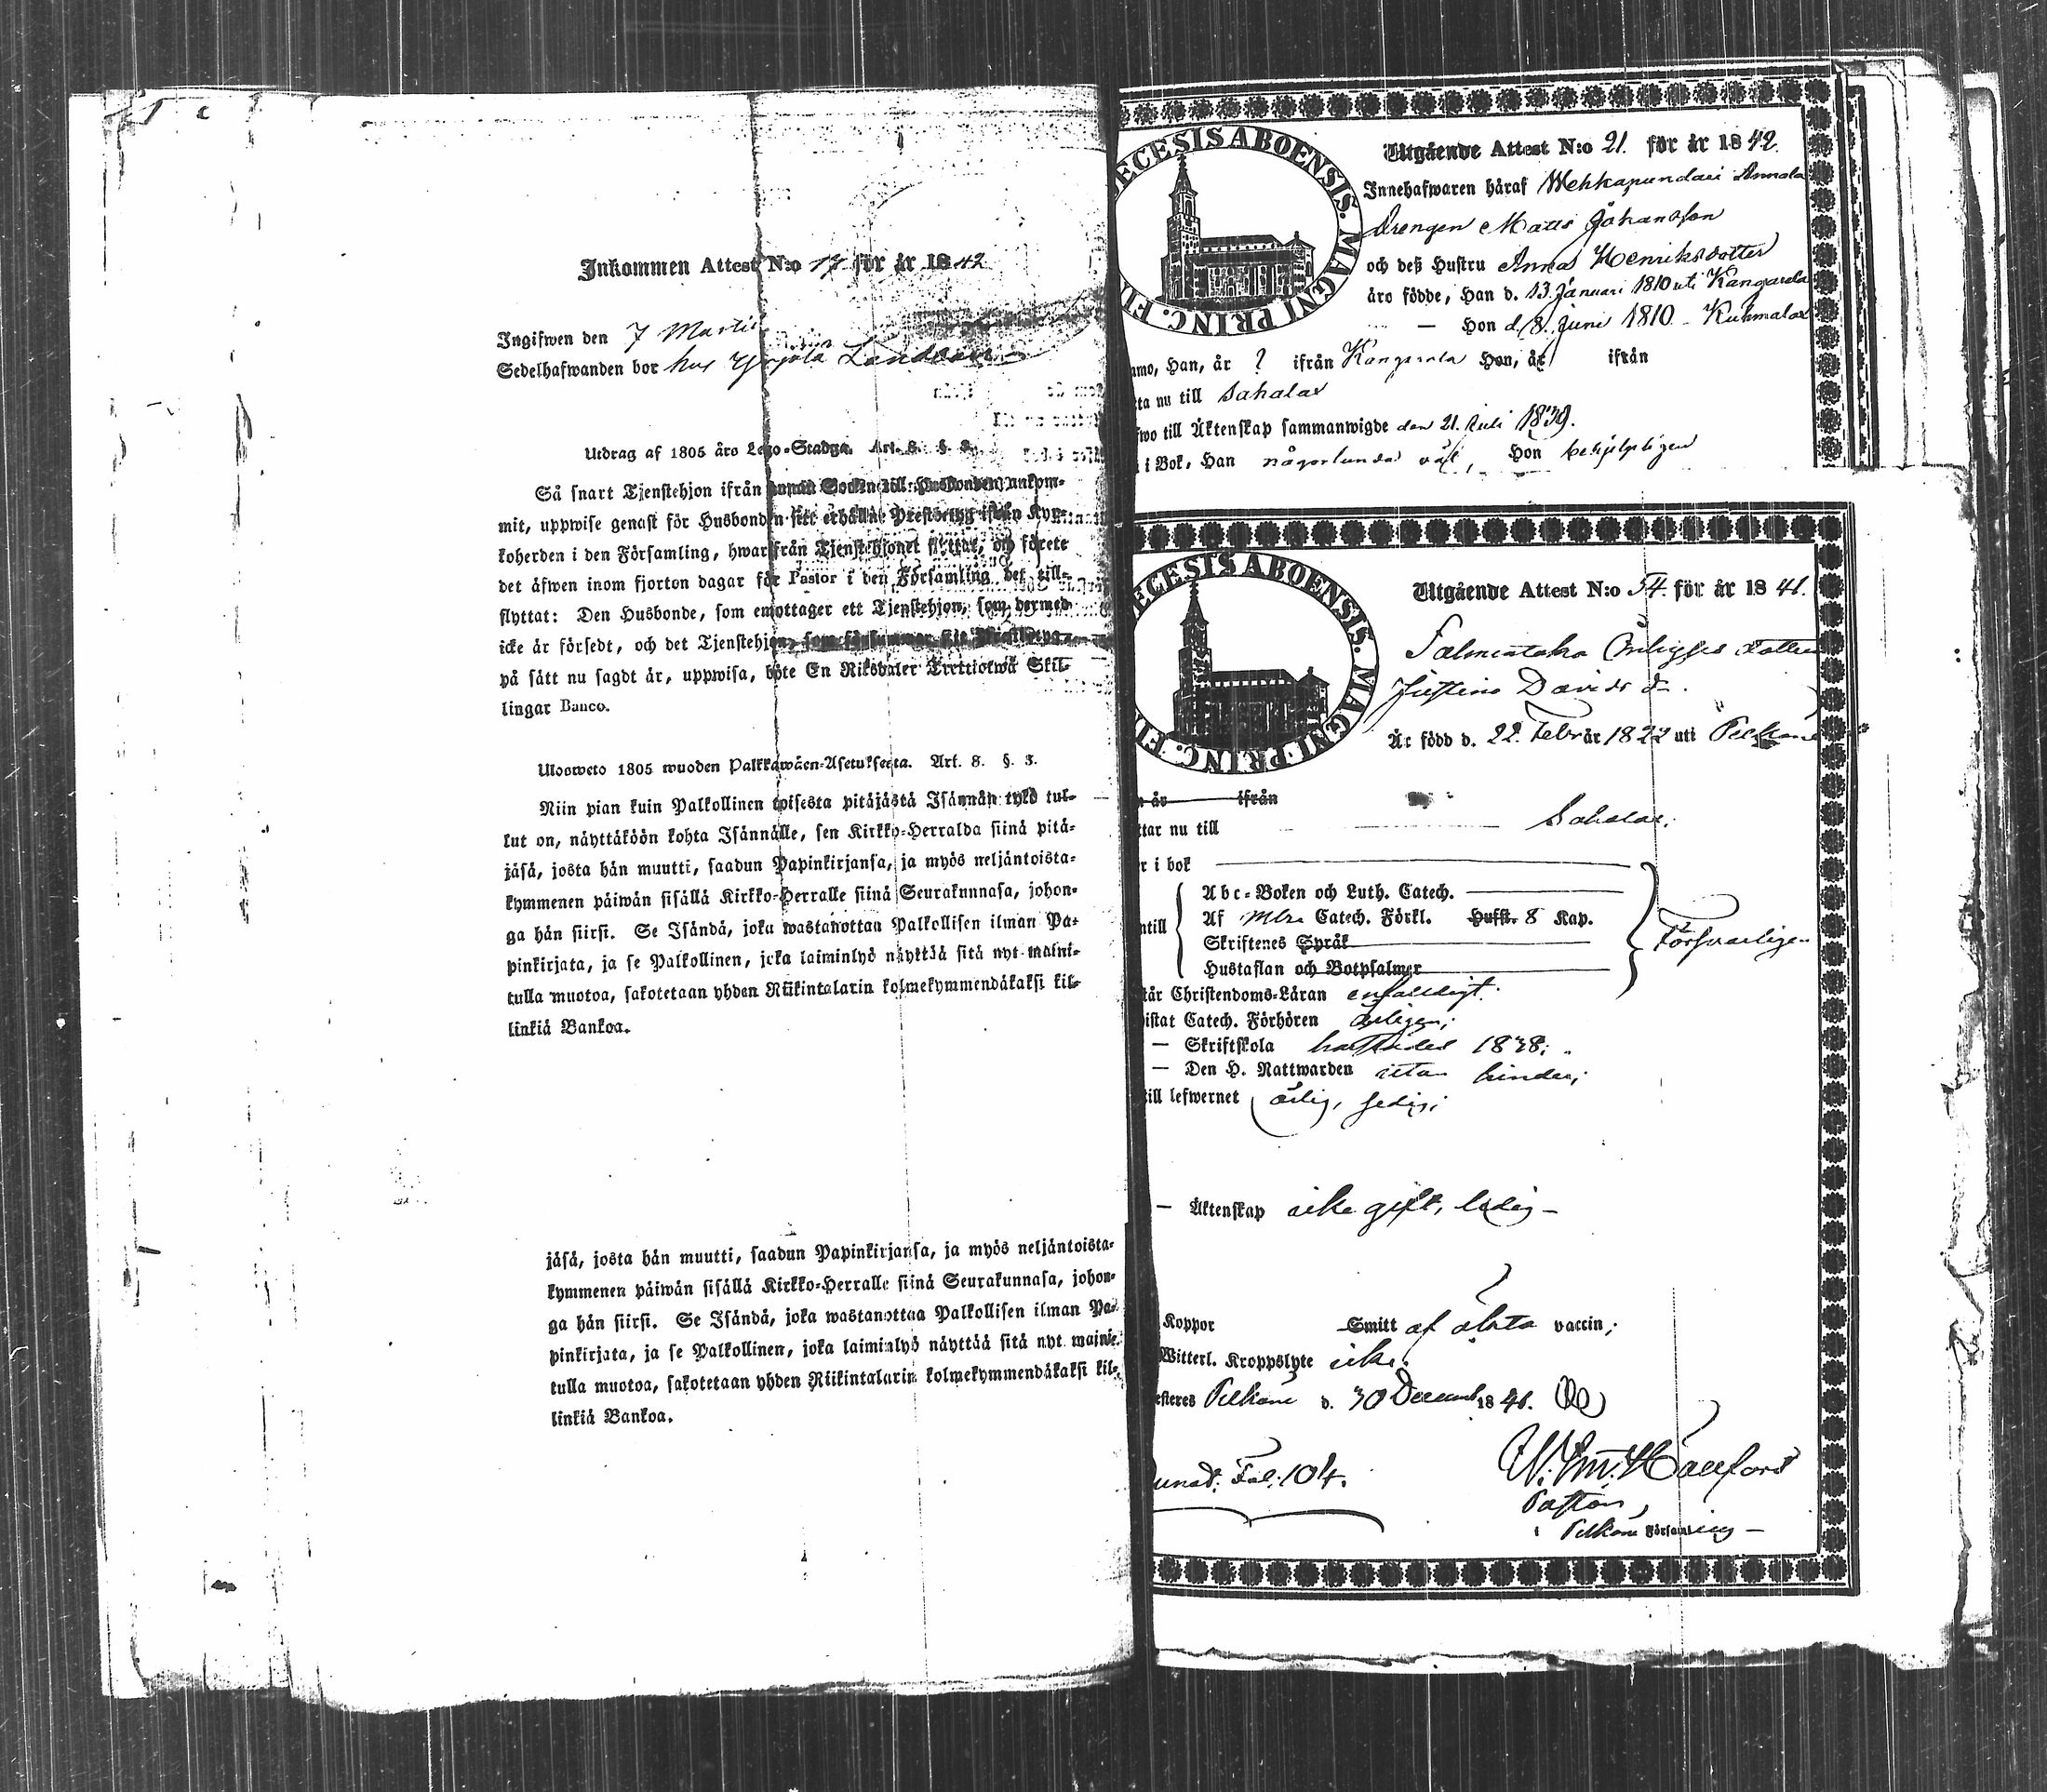 Inkommen Attest N:o 17 för år 1842
Ingifwen den 7 Martii
Sedelhafwanden bor hos
Utdrag af 1805 års Lego-Stadga. Art. 8. §. 3.
Så snart Tjenstehjon ifrån annan Socken till Husbonden ankom-
mit, uppwise genast för Husbonden sitt erhållne Prestbetyg ifrån Kyr-
koherden i den Församling, hwarifrån Tjenstehjonet flyttat, och förete
det äfwen inom fjorton dagar för Pastor i den Församling det till-
flyttat: Den Husbonde, som emottager ett Tjenstehjon, som dermed
icke är försedt, och det Tjenstehjon, som försummar sitt Prestbetyg
på sätt nu sagdt är, uppwisa, böte En Riksdaler Trettiotwå Skil-
lingar Banco.
Uloswето 1805 wuoden Palkkawäen-Asetuksesta. Art. 8. §. 3.
Niin pian kuin Palkollinen toisesta pitäjästä Isännän tykö tul-
lut on, näyttäköön kohta Isännälle, sen Kirkko-Herralda siinä pitä-
jäsä, josta hän muutti, saadun Papinkirjansa, ja myös neljäntoista-
kymmenen päiwän sisällä Kirkko-Herralle siinä Seurakunnasa, johon-
ga hän siirsi. Se Isändä, joka wastanottaa Palkollisen ilman Pa-
pinkirjata, ja se Palkollinen, joka laiminlyö näyttää sitä nyt maini-
tulla muotoa, sakotetaan yhden Riikintalarin kolmekymmendäkaksi kil-
linkiä Bankoa.
jäsä, josta hän muutti, saadun Papinkirjansa, ja myös neljäntoista-
kymmenen päiwän sisällä Kirkko-Herralle siinä Seurakunnasa, johon-
ga hän siirsi. Se Isändä, joka wastanottaa Palkollisen ilman Pa-
pinkirjata, ja se Palkollinen, joka laiminlyö näyttää sitä nyt maini-
tulla muotoa, sakotetaan yhden Riikintalarin kolmekymmendäkaksi kil-
linkiä Bankoa.
ECESIS ABOENSIS. MAGNI PRINC. FI
Utgående Attest N:o 21. för år 1842.
Innehafwaren häraf Wehkapundari Annala
Drengen Matts Johansson
och deß Hustru Anna Henriksdotter
äro födde, Han d. 13. Januari 1810 uti Kangasala
— Hon d. 8. Juni 1810 - Kuhmalax
mo, Han, år ? ifrån Kangasala Hon, år ifrån
tta nu till Sahalax
wo till Äktenskap sammanwigde den 21. Juli 1839.
i Bok, Han någorlunda väl, Hon behjelpligen
ECESIS ABOENSIS. MAGNI PRINC. FI
Utgående Attest N:o 54. för år 1841.
Salmentaka dotter
Justina Davids dr.
Är född d. 22. Febr år 1822 uti Pelkäne
n år ifrån
ttar nu till Sahalax.
r i bok
Abc-Boken och Luth. Catech.
ntill Af Catech. Förkl. Hufst. 8 Kap. Förswarligen
Skriftenes Språk
Hustaflan och Botpsalmer
tår Christendoms-Läran enfaldigt.
istat Catech. Förhören årligen;
— Skriftskola 1838;
— Den H. Nattwarden utan hinder;
till lefwernet ärlig, sedig;
— Äktenskap icke gift, ledig -
Koppor Smitt af äkta vaccin;
Witterl. Kroppslyte icke.
esteres Pelkäne d. 30 Decemb 1841.
Fol. 104.
Pastor,
i Pelkäne Församling -